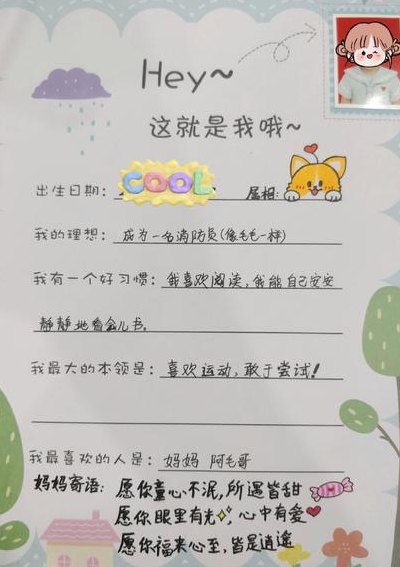 Hey~
这就是我哦~
出生日期: COOL 属相:
我的理想: 成为一名消防员(像毛毛一样)
我有一个好习惯: 我喜欢阅读,我能自己安安
静静地看会儿书。
我最大的本领是: 喜欢运动,敢于尝试!
我最喜欢的人是: 妈妈 阿毛哥
妈妈寄语: 愿你童心不泯,所遇皆甜
愿你眼里有光,心中有爱
愿你福来心至,皆是逍途